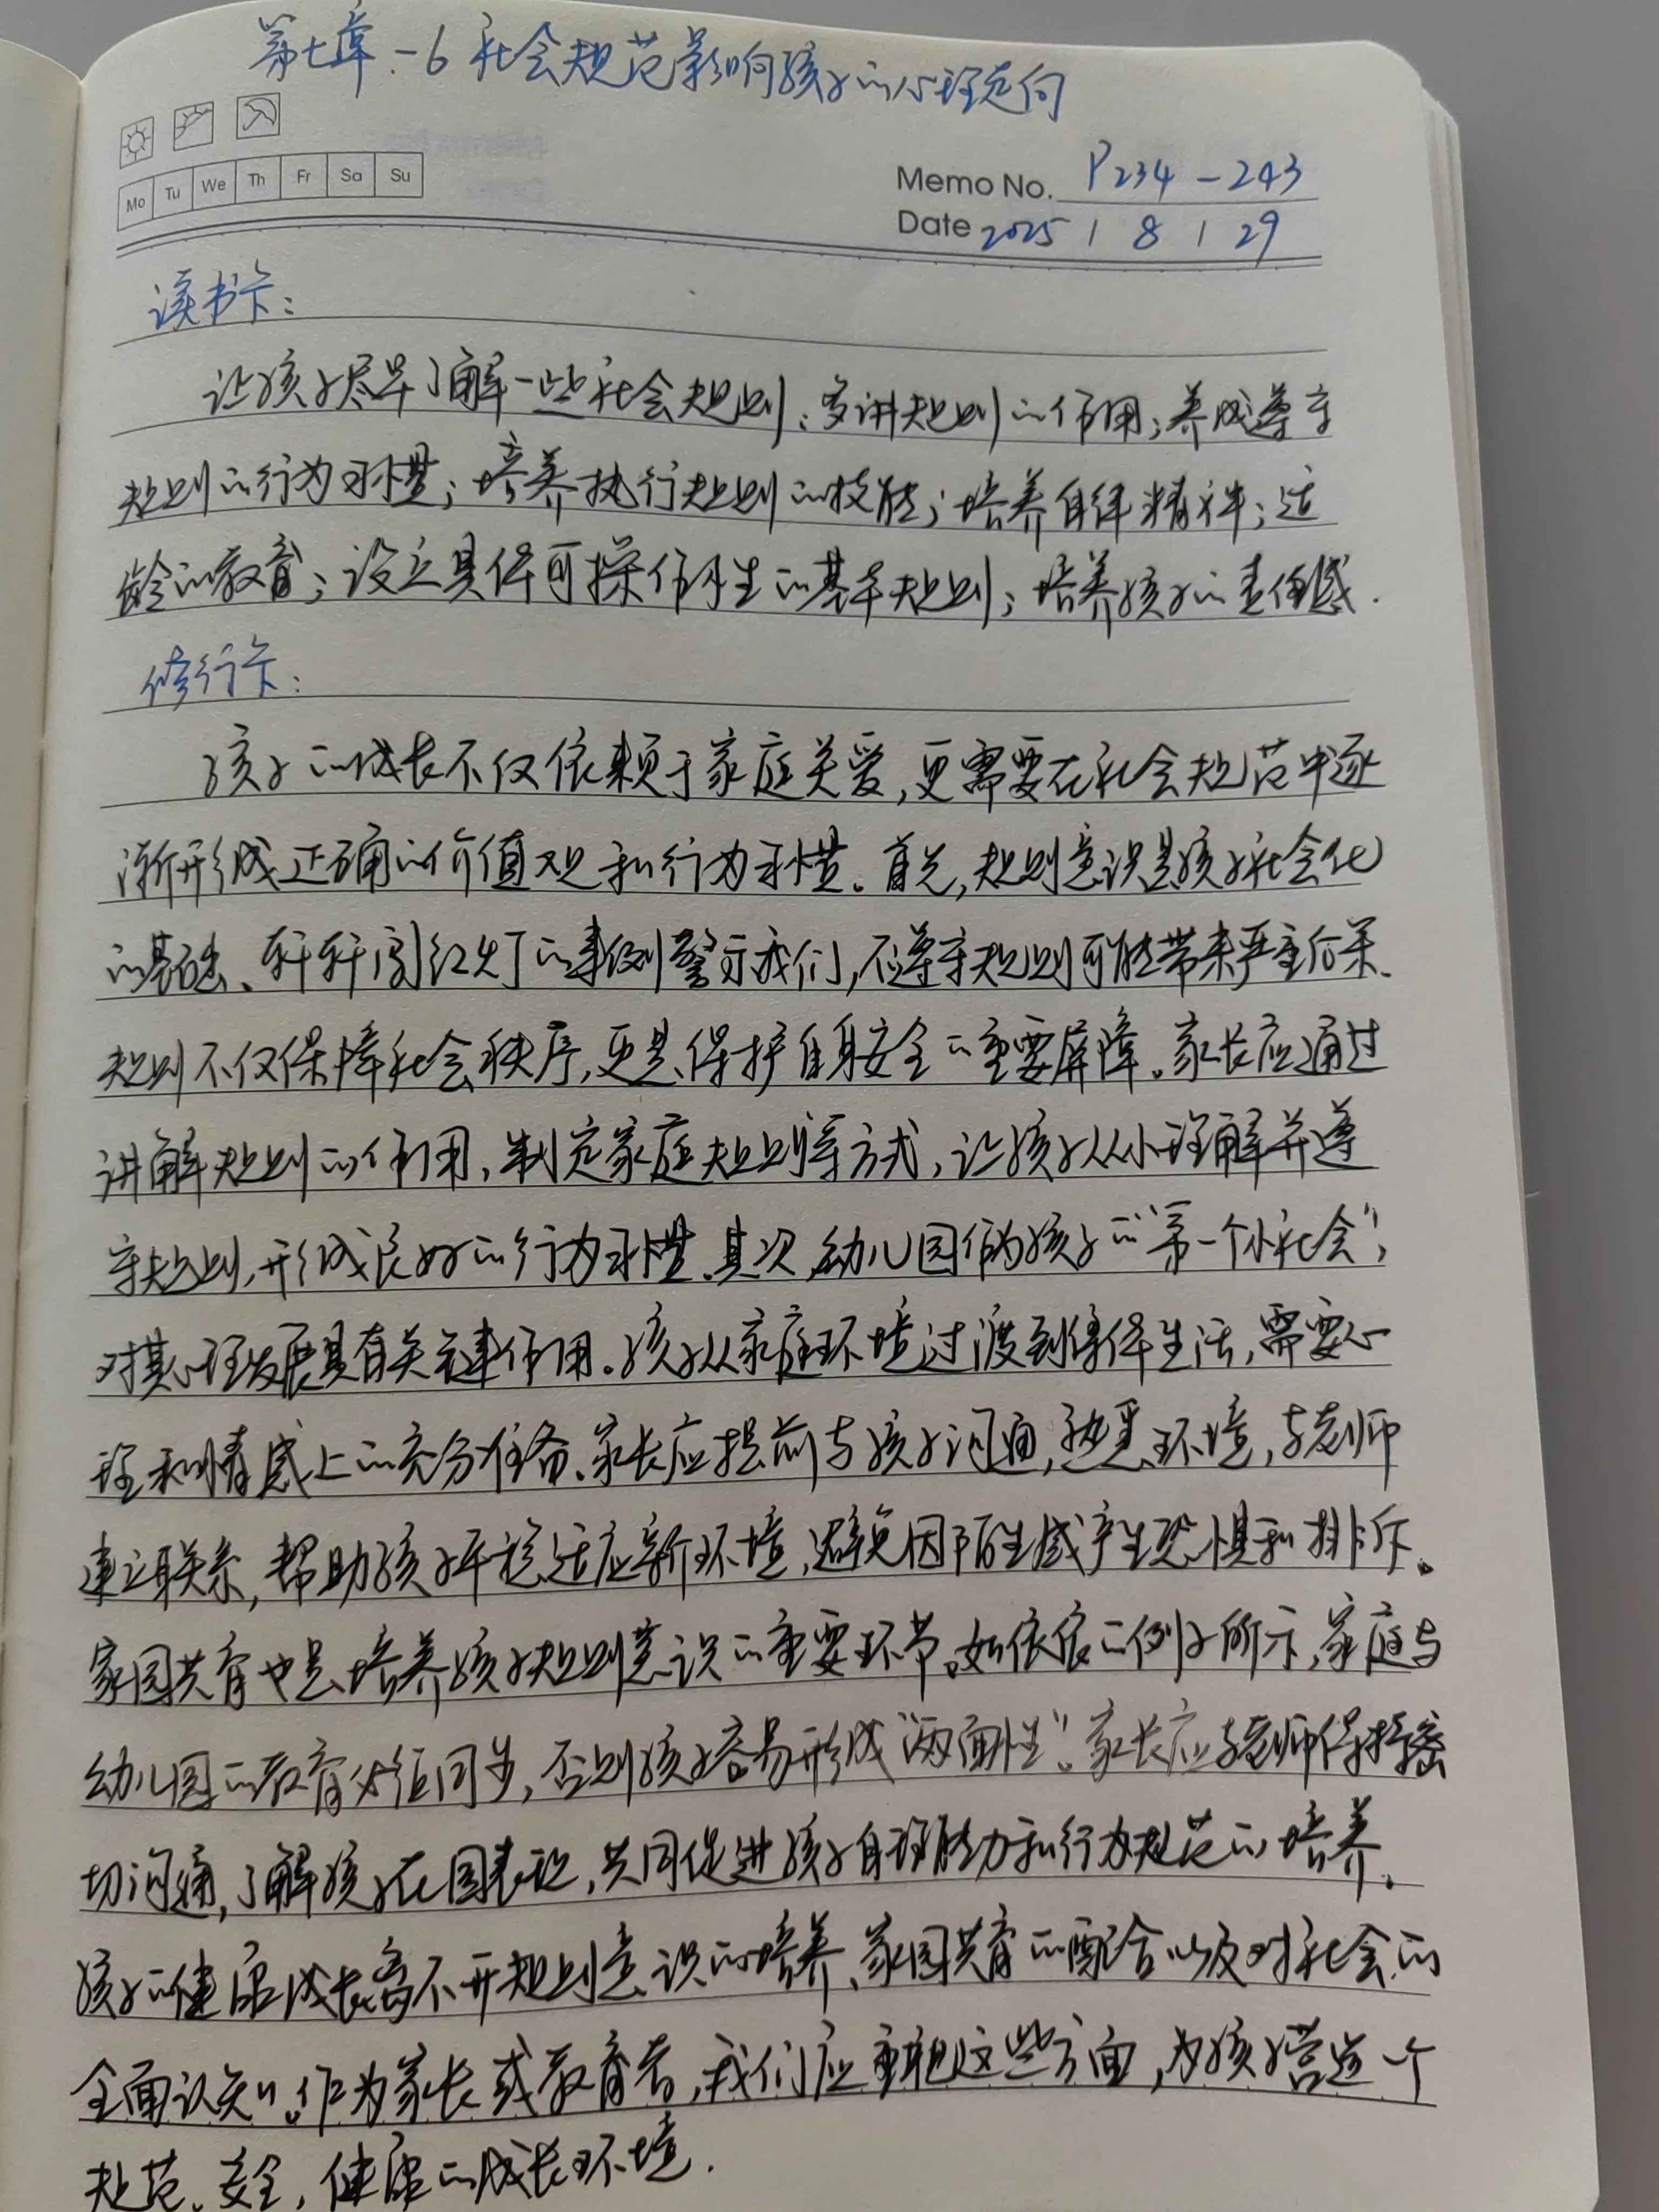 第七章-6 社会规范影响孩子的心理走向
Mo Tu We Th Fr Sa Su
Memo No. P234-243
Date 2025 / 8 / 29
读书卡：
让孩子尽早了解一些社会规则；多讲规则的作用；养成遵守
规则的行为习惯；培养执行规则的技能；培养自律精神；适
龄的教育；设立具体可操作性的基本规则；培养孩子的责任感.
修行卡：
孩子的成长不仅依赖于家庭关爱，更需要在社会规范中逐
渐形成正确的价值观和行为习惯。首先，规则意识是孩子社会化
的基础、轩轩闯红灯的事例警示我们，不遵守规则可能带来严重后果.
规则不仅保障社会秩序，更是保护自身安全的重要屏障。家长应通过
讲解规则的作用，制定家庭规则等方式，让孩子从小理解并遵
守规则，形成良好的行为习惯.其次，幼儿园作为孩子的“第一个小社会”，
对其心理发展具有关键作用。孩子从家庭环境过渡到集体生活，需要心
理和情感上的充分准备.家长应提前与孩子沟通，熟悉环境，与老师
建立联系，帮助孩子平稳适应新环境，避免因陌生感产生恐惧和排斥。
家园共育也是培养孩子规则意识的重要环节。如依依的例子所示，家庭与
幼儿园的教育必须同步，否则孩子容易形成“两面性”。家长应与老师保持密
切沟通，了解孩子在园表现，共同促进孩子自理能力和行为规范的培养。
孩子的健康成长离不开规则意识的培养、家园共育的配合以及对社会的
全面认知。作为家长或教育者，我们应重视这些方面，为孩子营造一个
规范、安全，健康的成长环境.